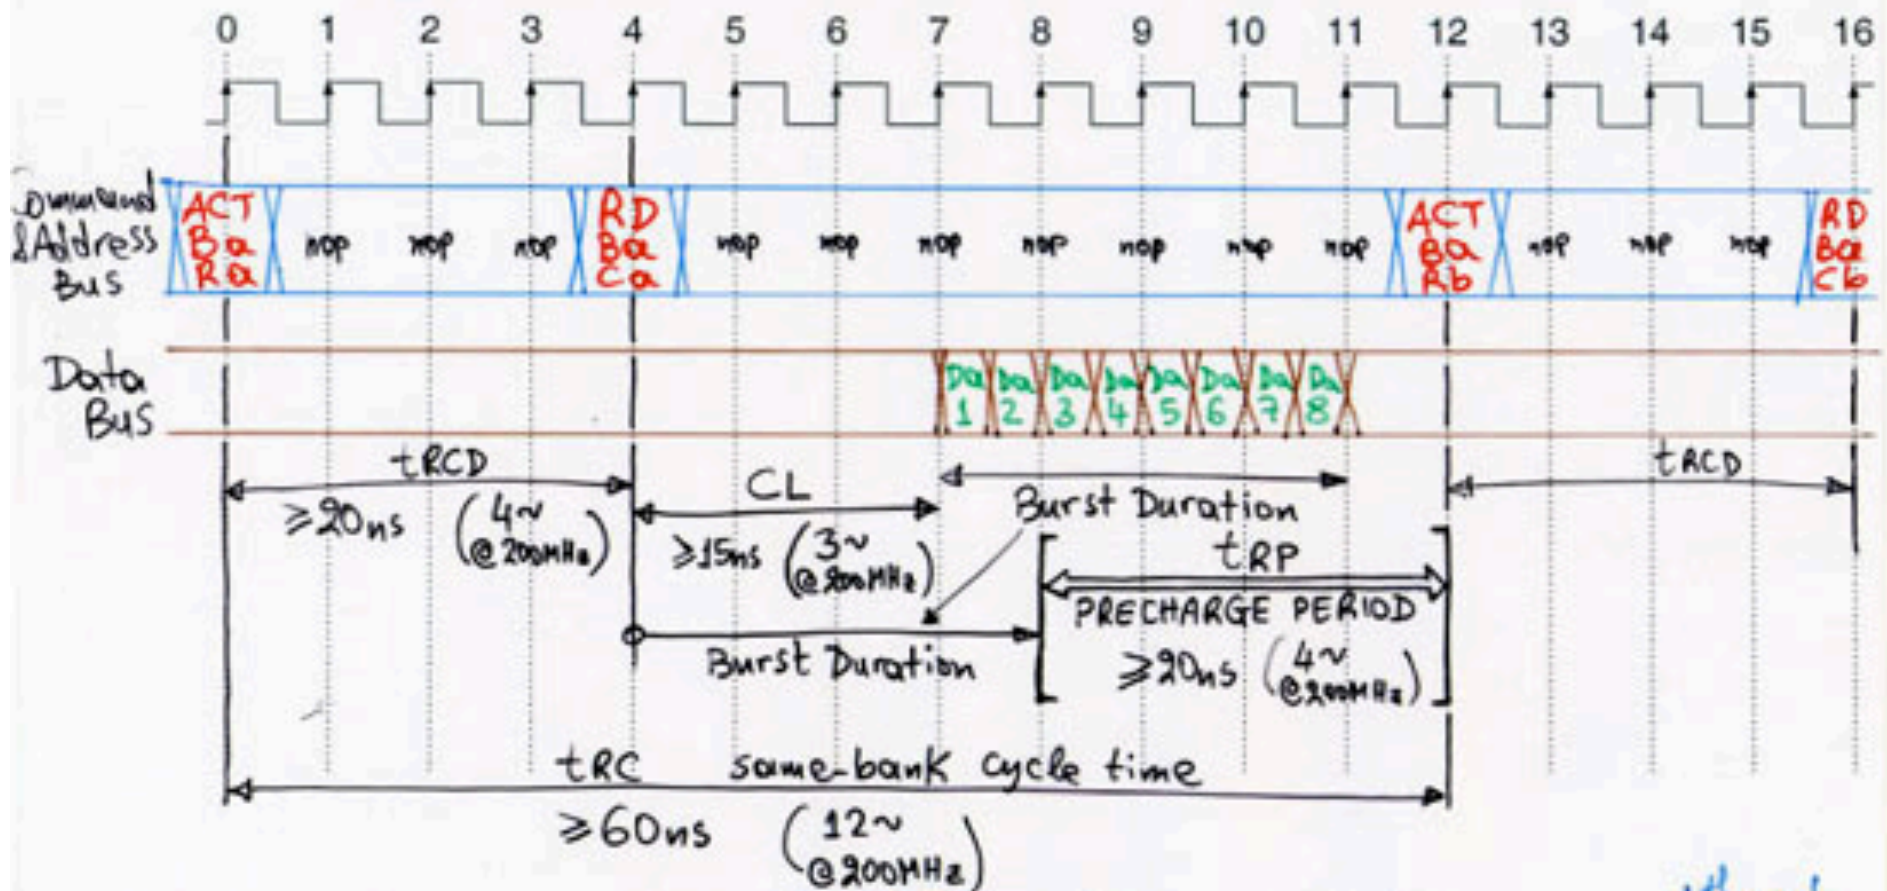 0 1 2 3 4 5 6 7 8 9 10 11 12 13 14 15 16
Command
&Address
Bus
ACT
Ba
Ra
nop nop nop
RD
Ba
Ca
nop nop nop nop nop nop nop
ACT
Ba
Rb
nop nop nop
RD
Ba
Cb
Data
Bus
Da Da Da Da Da Da Da Da
1 2 3 4 5 6 7 8
tRCD
≥20ns (4~ @200MHz)
CL
≥15ns (3~ @200MHz)
Burst Duration
tRCD
tRP
PRECHARGE PERIOD
≥20ns (4~ @200MHz)
Burst Duration
tRC same-bank cycle time
≥60ns (12~ @200MHz)